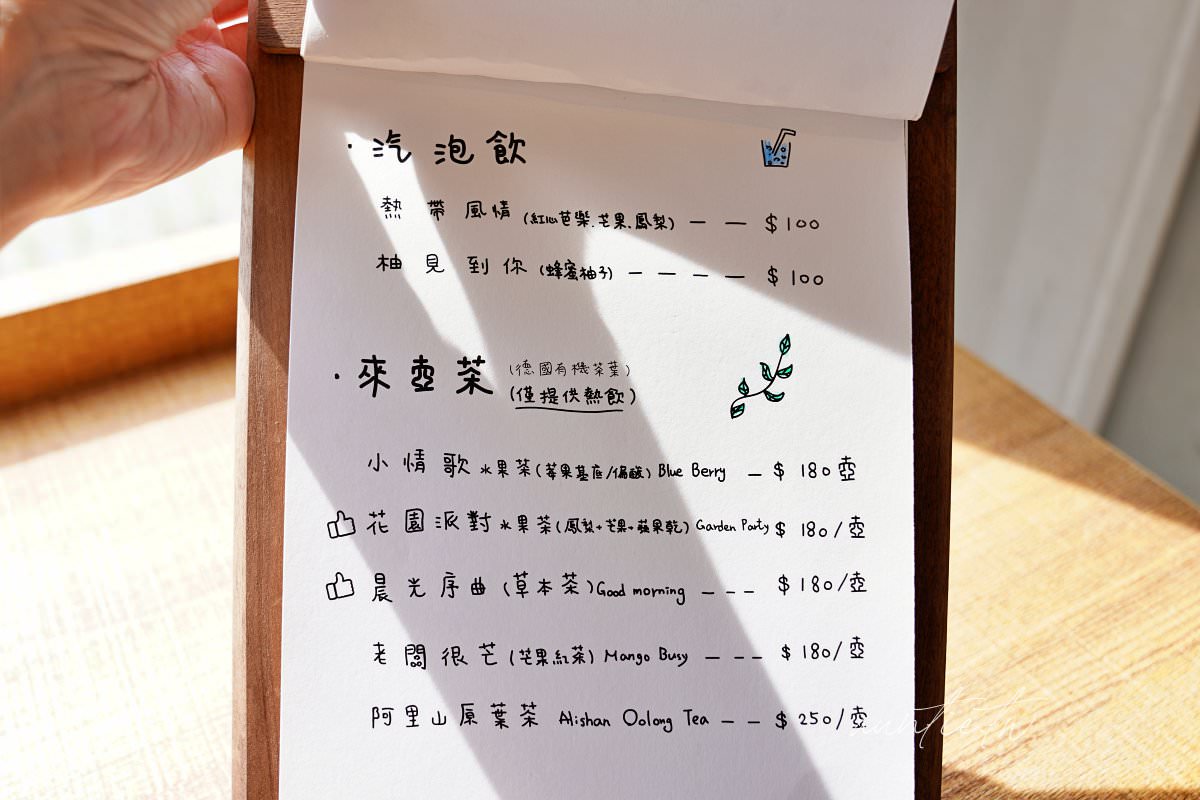 ·汽泡飲
熱帶風情(紅心芭樂.芒果.鳳梨) — — $100
柚見到你(蜂蜜柚子) — — — — $100
·來壺茶(德國有機茶葉)
(僅提供熱飲)
小情歌水果茶(莓果基底/偏酸) Blue Berry — $180壺
花園派對水果茶(鳳梨+芒果+蘋果乾) Garden Party $180/壺
晨光序曲(草本茶)Good morning - - - $180/壺
老闆很芒(芒果紅茶) Mango Busy - - - $180/壺
阿里山原葉茶 Alishan Oolong Tea - - $250/壺